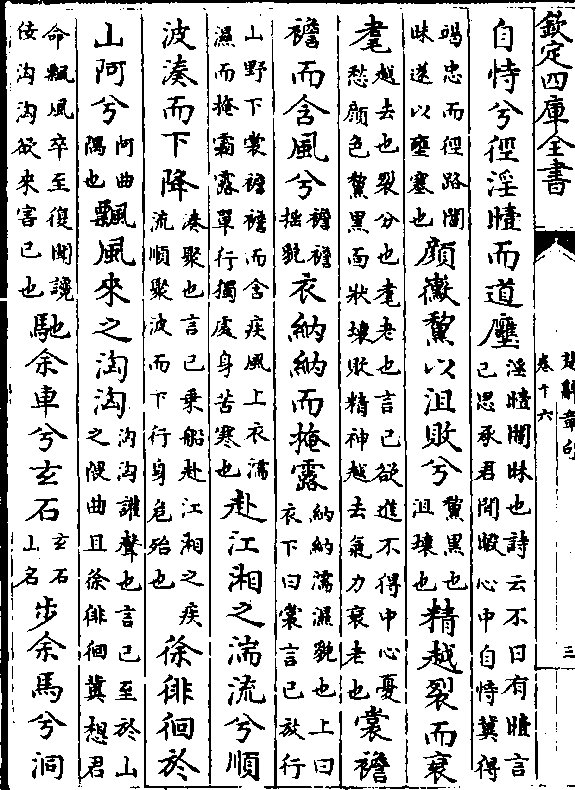 欽定四庫全書
楚辭章句
卷十六
三
自恃兮徑淫曀而道壅淫曀闇昧也詩云不日有曀言己思承君間暇心中自恃冀得
竭忠而徑路闇昧遂以壅塞也顏黴黧以沮敗兮黧黑也沮壞也精越裂而衰
耄越去也裂分也耄老也言己欲進不得中心憂愁顏色黧黑面狀壞敗精神越去氣力衰老也裳襜
襜而含風兮襜襜摇貌衣納納而掩露納納濡濕貌也上曰衣下曰裳言己放行
山野下裳襜襜而含疾風上衣濡濕而掩霜露單行獨處身苦寒也赴江湘之湍流兮順
波湊而下降湊聚也言己乗船赴江湘之疾流順聚波而下行身危殆也徐徘徊於
山阿兮阿曲隅也飄風來之洶洶洶洶讙聲也言己至於山之隈曲且徐徘徊冀想君
命飄風卒至復聞讒佞洶洶欲來害己也馳余車兮玄石玄石山名步余馬兮洞